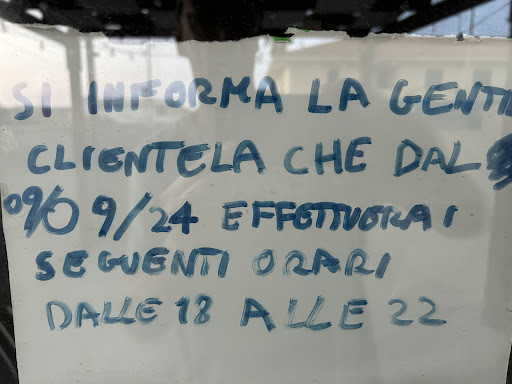 SI INFORMA LA GENTIL
CLIENTELA CHE DAL
9/24 EFFETTUERA I
SEGUENTI ORARI
DALLE 18 ALLE 22